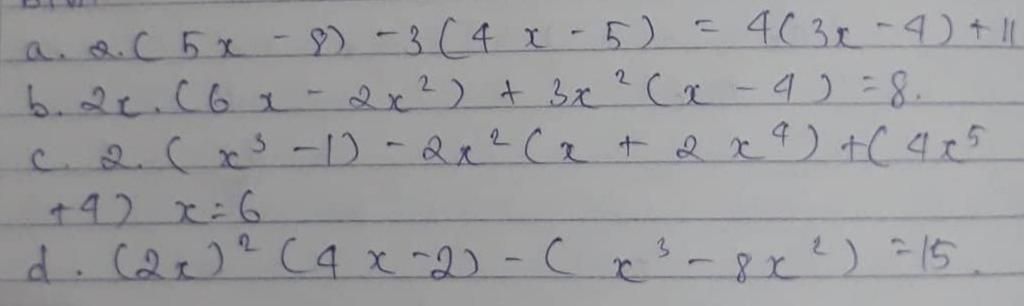 a. 2.( 5x - 8) - 3( 4 x - 5) = 4(3x - 4) + 11
b. 2x.(6 x - 2x²) + 3x²(x - 4) = 8.
c. 2.( x³ - 1) - 2x²(x + 2 x⁴) + (4x⁵
+4) x = 6
d. (2x)² (4 x - 2) - ( x³ - 8x²) = 15.